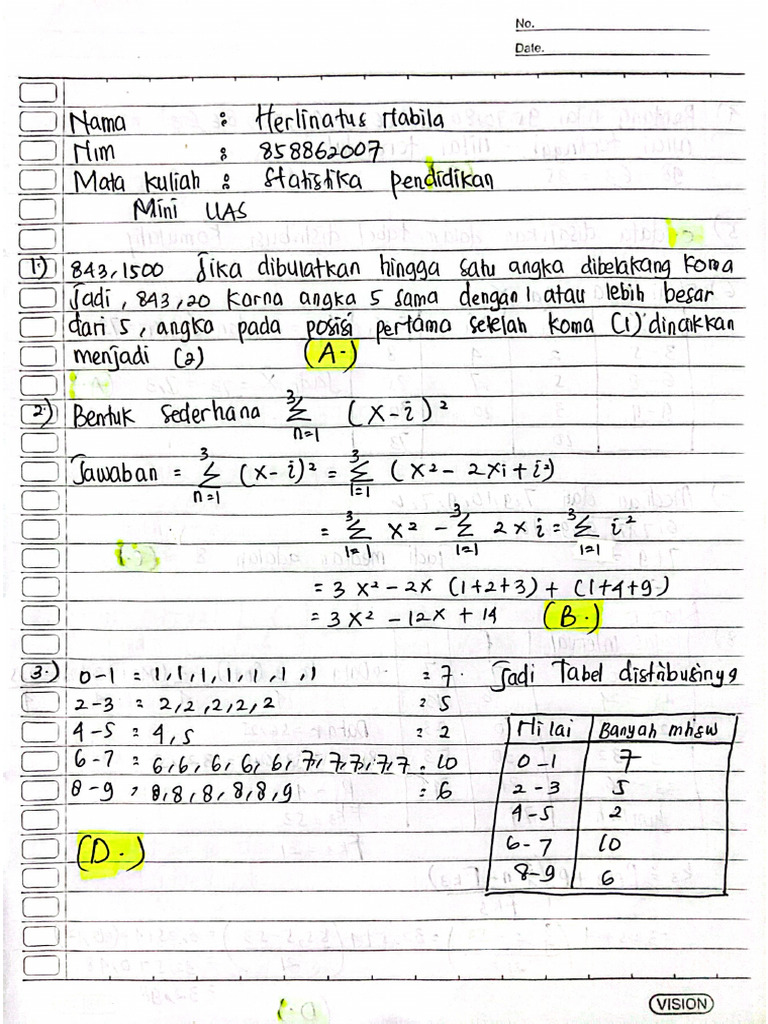 No.
Date.
Nama : Herlinatus Nabila
Nim : 858862007
Mata kuliah : Statistika pendidikan
Mini UAS
1.) 843,1500 Jika dibulatkan hingga satu angka dibelakang koma
Jadi, 843,20 karna angka 5 sama dengan 1 atau lebih besar
dari 5, angka pada posisi pertama setelah koma (1) dinaikkan
menjadi (2) (A.)
2.) Bentuk sederhana 3 Σ n=1 (x-i)²
Jawaban = 3 Σ n=1 (x-i)² = 3 Σ i=1 (x² - 2xi + i²)
= 3 Σ i=1 x² - 3 Σ i=1 2xi = 3 Σ i=1 i²
= 3x² - 2x (1+2+3) + (1+4+9)
= 3x² - 12x + 14 (B.)
3.) 0-1 = 1,1,1,1,1,1,1 = 7 Jadi Tabel distribusinya
2-3 = 2,2,2,2,2 = 5
4-5 = 4,5 = 2
6-7 = 6,6,6,6,6,7,7,7,7,7 = 10
8-9 = 8,8,8,8,8,9 = 6
Nilai Banyak mhsw
0-1 7
2-3 5
4-5 2
6-7 10
8-9 6
(D.)
VISION